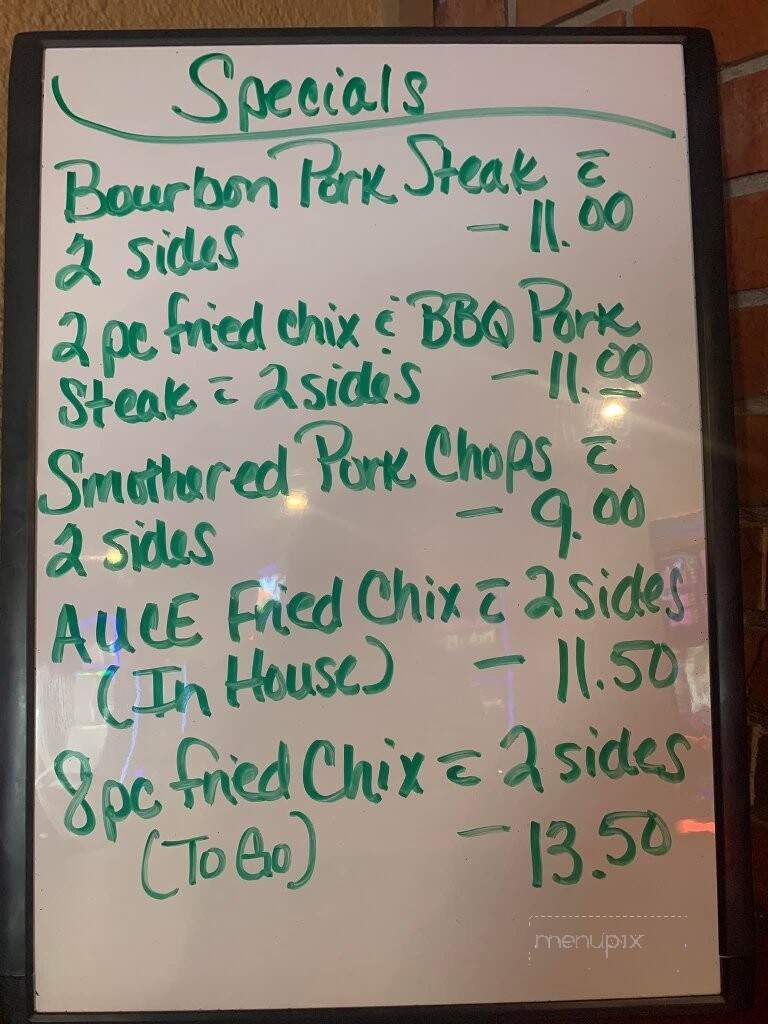 Specials
Bourbon Pork Steak c̄
2 sides - 11.00
2pc fried chix & BBQ Pork
Steak c̄ 2 sides - 11.00
Smothered Pork Chops c̄
2 sides - 9.00
AUCE Fried Chix c̄ 2 sides
(In House) - 11.50
8pc fried Chix c̄ 2 sides
(To Go) - 13.50
menupix